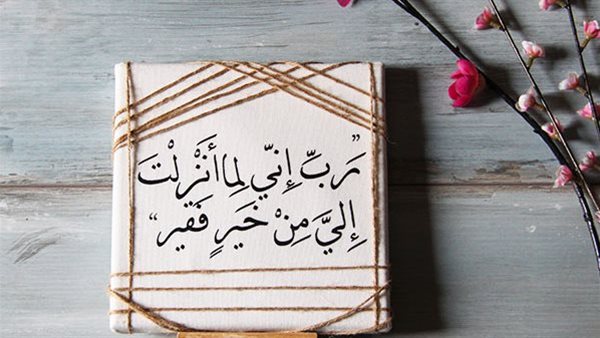 ”رَبّ إِنّي لِما أَنْزَلْتَ
إِليَّ مِنْ خَيرٍ فَقير“